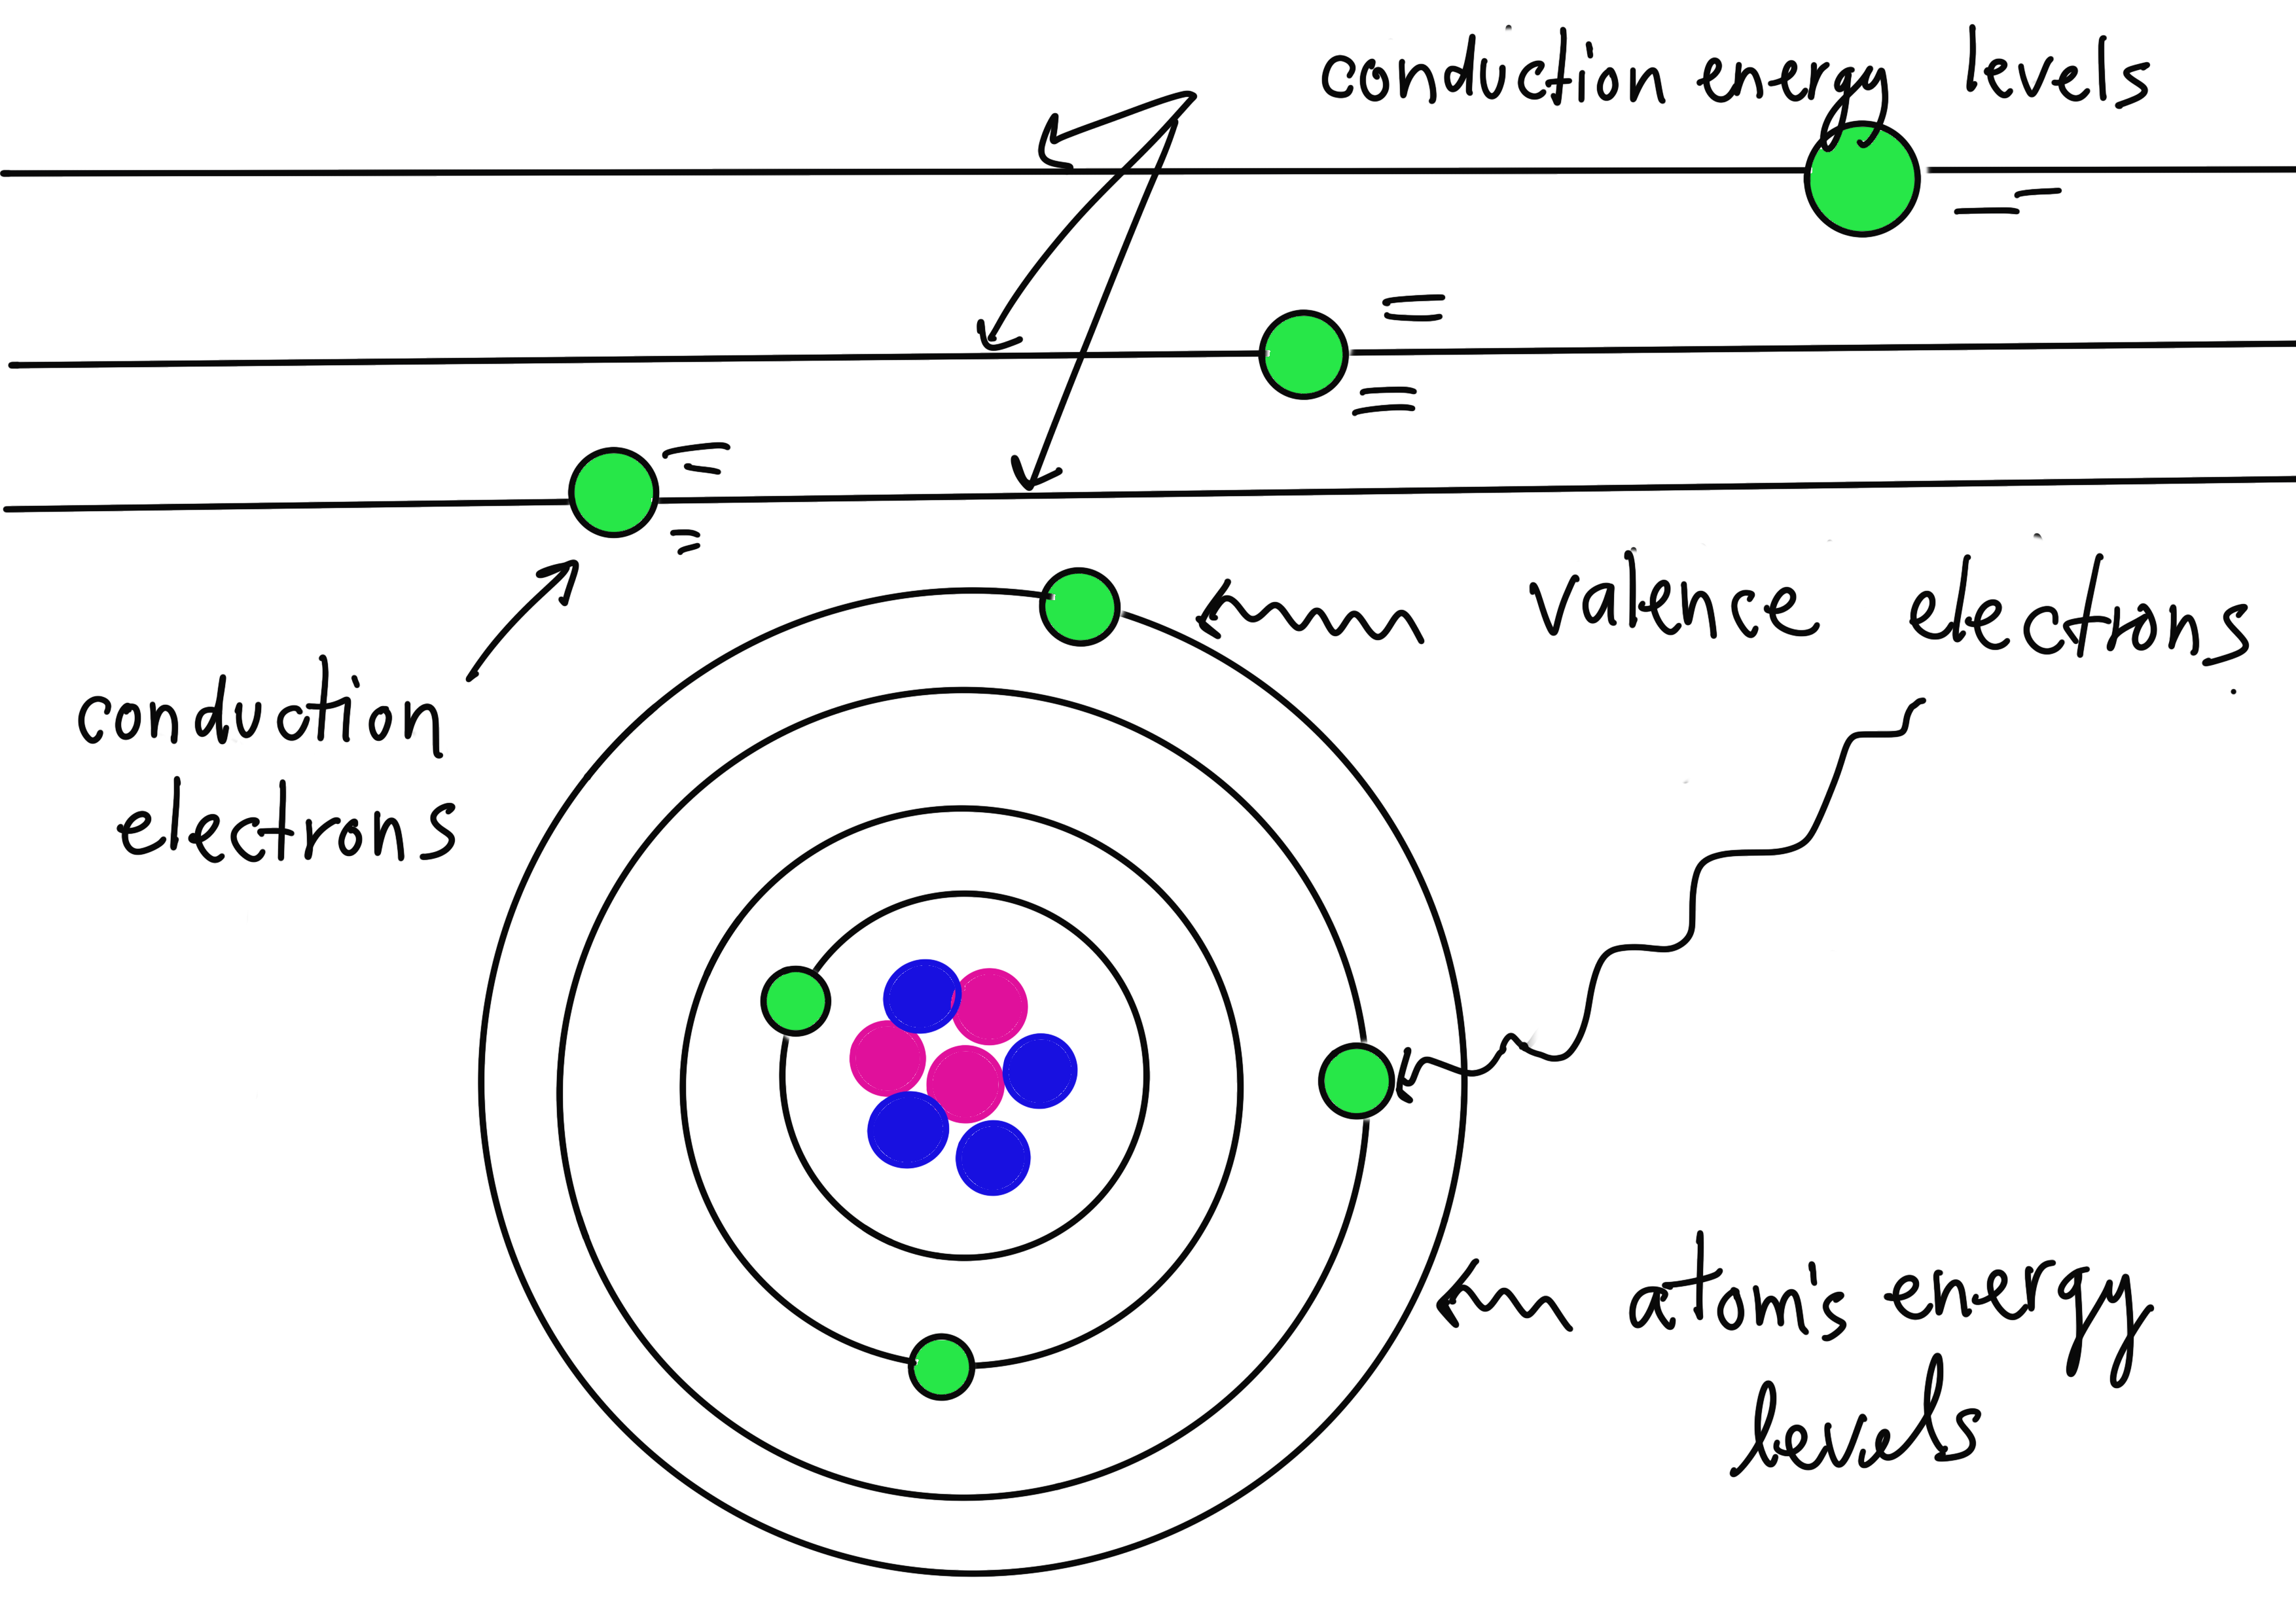 conduction energy levels
valence electrons
conduction
electrons
atom's energy
levels